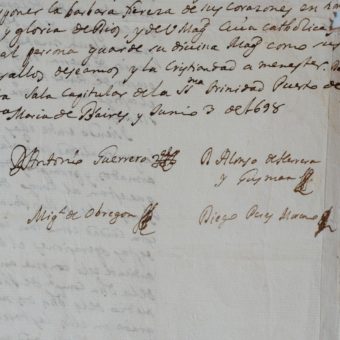 poner la barbara fiereza de sus corazones en
y gloria de Dios, y de V Magᵈ cuia catholica
al persona guarde su divina Magᵈ como sus
vallos deseamos, y la cristiandad a menester
Sala Capitular de la SSᵐᵃ trinidad Puerto de
Maria de Baires, y Junio 3 de 1698
D Antonio Guerrero
D Alonso de Herrera
y Guzman
Migˡ de Obregon
Diego